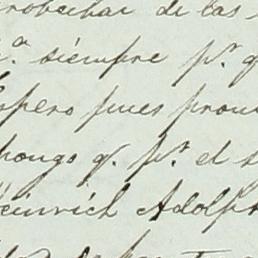 rovechar de las
ª siempre pr. q
Espero pues pron
pongo q. pr. el s
Heinrich Adolf